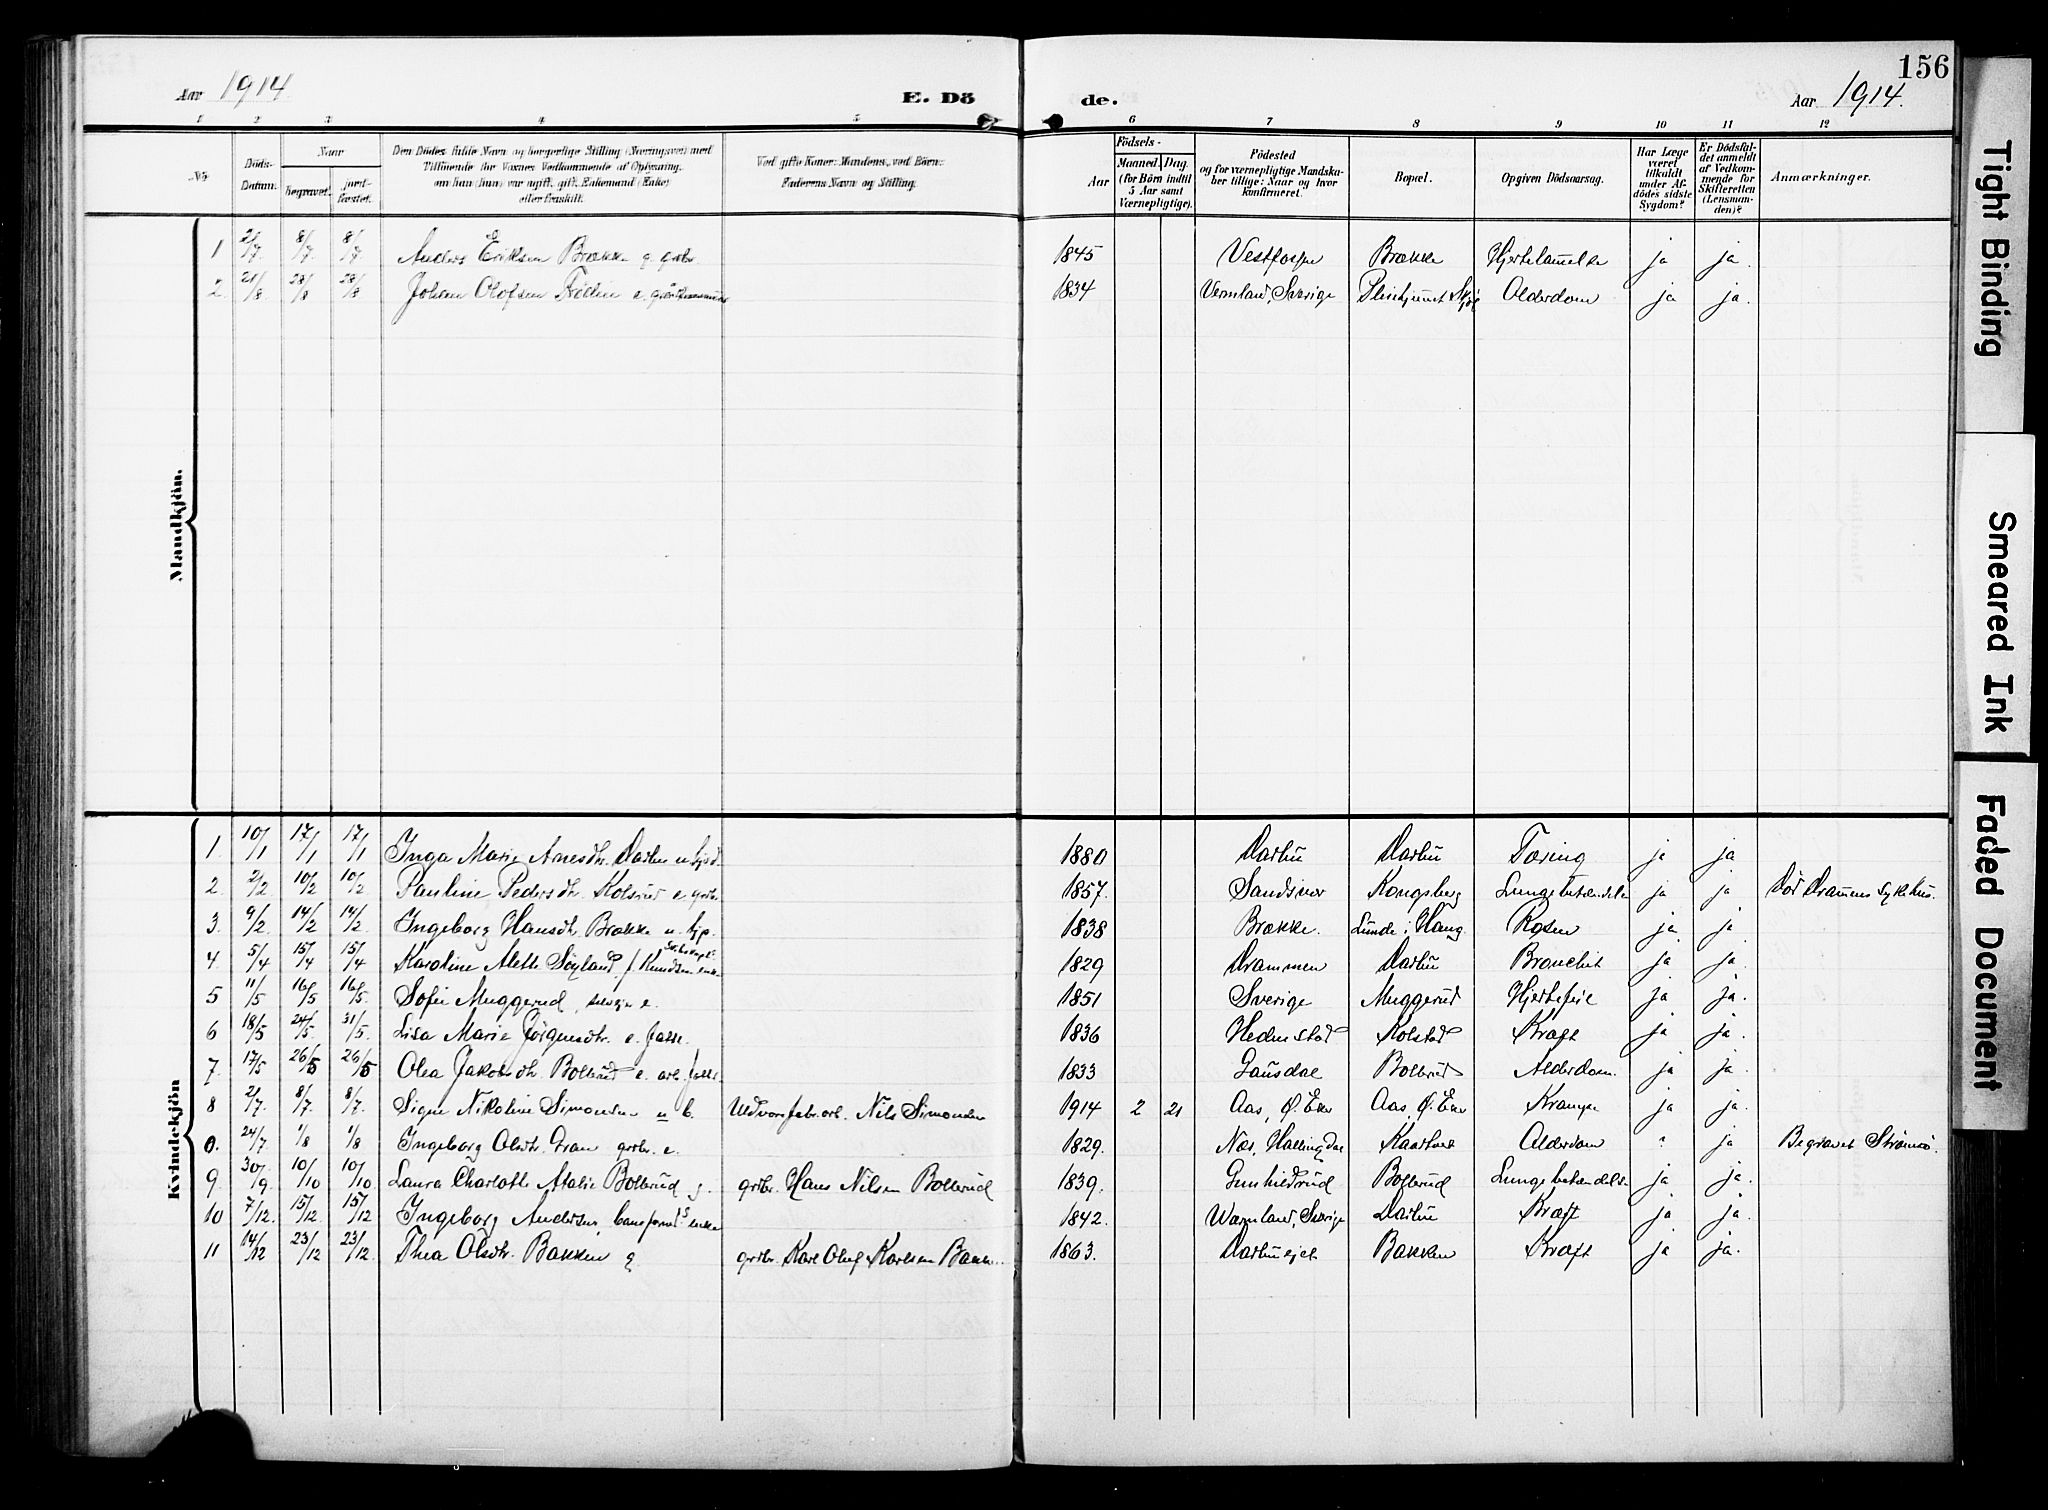 156
Aar 1914. E. Dö de. Aar 1914.
1 2 3 4 5 6 7 8 9 10 11 12
No Döds-Datum. Naar begravet. jord-fæstet. Den Dödes fulde Navn og borgerlige Stilling (Næringsvei) med Tilföiende for Voxnes Vedkommende af Oplysning, om han (hun) var ugift, gift, Enkemand (Enke) eller fraskilt. Ved gifte Koner: Mandens, ved Börn: Faderens Navn og Stilling. Födsels- Aar Maaned. Dag. (for Börn indtil 5 Aar samt Værnepligtige). Födested og for værnepligtige Mandskaber tillige: Naar og hvor konfirmeret. Bopæl. Opgiven Dödsaarsag. Har Læge været tilkaldt under Afdödes sidste Sygdom? Er Dödsfaldet anmeldt af Vedkommende for Skifteretten (Lensmanden)? Anmærkninger.
Mandkjön.
1 2/7 8/7 8/7 Anders Eriksen Brække g. grbr. 1845 Vestfossen Brække Hjertelammelse ja ja.
2. 21/8 28/8 28/8 Johan Olofsen Frödin e. 1834 Vermland, Sverige Alderdom ja ja.
Kvindekjön
1. 10/1 17/1 17/1 Inga Marie Arnesdtr. Darbu u. 1880 Darbu Darbu Tæring ja ja
2. 2/2 10/2 10/2 Pauline Pedersdtr. Kolsrud e. grbr. 1857. Sandsvær Kongsberg Lungebetændelse ja ja Død Drammens sykehus.
3. 9/2 14/2 14/2 Ingeborg Hansdtr. Brække u. 1838 Brække. Lunde i Haug Rosen ja ja
4. 5/4 15/4 15/4 Karoline Aleth Søyland, f. Knudsen enke 1829 Drammen Darbu Bronchit ja ja.
5 11/5 16/5 16/5. Sofie Muggerud, e. 1851 Sverige Muggerud Hjertefeil ja ja.
6 18/5 24/5 31/5. Lisa Marie Jörgensdtr. e. 1836 Hedenstad Kolstad Kræft ja ja.
7. 17/5 26/5 26/5 Olea Jakobsdtr. Bollerud e. 1833 Bollerud Alderdom. ja ja.
8 2/7. 8/7. 8/7. Signe Nikoline Simonsen u b. Uldvarefabr.arb. Nils Simonsen 1914 2 21 Aas, Ø. Eker Aas, Ø. Eker Krampe ja ja.
0. 24/7 1/8 1/8 Ingeborg Olsdtr. grbr. e. 1829. Næs, Hallingdal Alderdom ? ja Begravet Strømsö.
9 30/9 10/10 10/10. Laura Charlotte Atalie Bollerud g. grbr. Hans Nilsen Bollerud 1839. Gunhildrud Bollerud Lungebetændelse ja ja.
10 7/12. 15/12. 15/12 Ingeborg Andersen, baneformands enke 1842. Wærmland, Sverige Darbu Kræft ja ja.
11 14/12 23/12 23/12. Thea Olsdtr. Bakken g grbr. Karl Oluf Karlsen Bakk.. 1863. Darbuejet Bakken Kræft ja ja.
Tight Binding
Smeared Ink
Faded Document